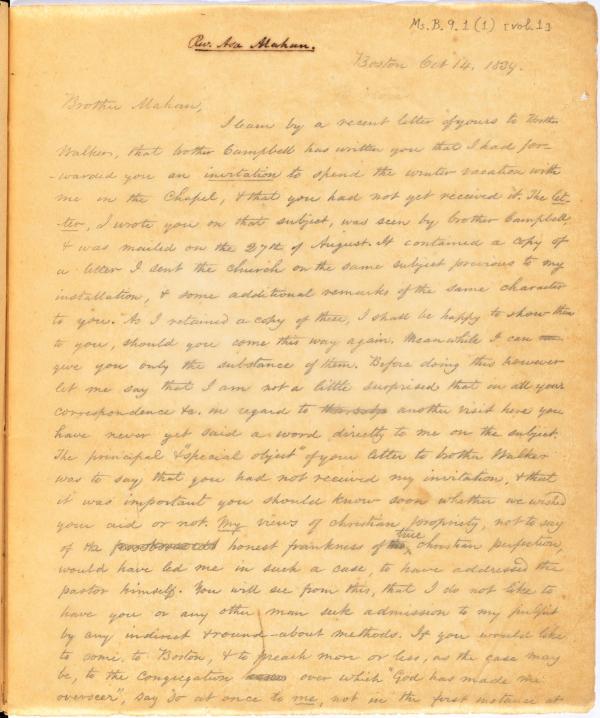 Ms. B. 9. 1 (1) [vol. 1]
Rev. Asa Mahan.
Boston Oct 14. 1839.
Brother Mahan,
I learn by a recent letter of yours to brother
Walker, that brother Campbell has written you that I had for-
-warded you an invitation to spend the winter vacation with
me in the Chapel, & that you had not yet received it. The let-
-ter, I wrote you on that subject, was seen by brother Campbell,
& was mailed on the 27th of August. It contained a copy of
a letter I sent the church on the same subject previous to my
installation, & some additional remarks of the same character
to you. As I retained a copy of these, I shall be happy to show them
to you, should you come this way again. Meanwhile I can
give you only the substance of them. Before doing this however
let me say that I am not a little surprised that in all your
correspondence &c. in regard to another visit here you
have never yet said a word directly to me on the subject.
The principal & "special object" of your letter to brother Walker
was to say that you had not received my invitation, & that
it was important you should know soon whether we wished
your aid or not. My views of christian propriety, not to say
of the honest frankness of true christian perfection,
would have led me in such a case, to have addressed the
pastor himself. You will see from this, that I do not like to
have you or any other man seek admission to my pulpit
by any indirect & round-about methods. If you would like
to come to Boston, & to preach more or less, as the case may
be, to the Congregation over which "God has made me
overseer", say so at once to me, not in the first instance at